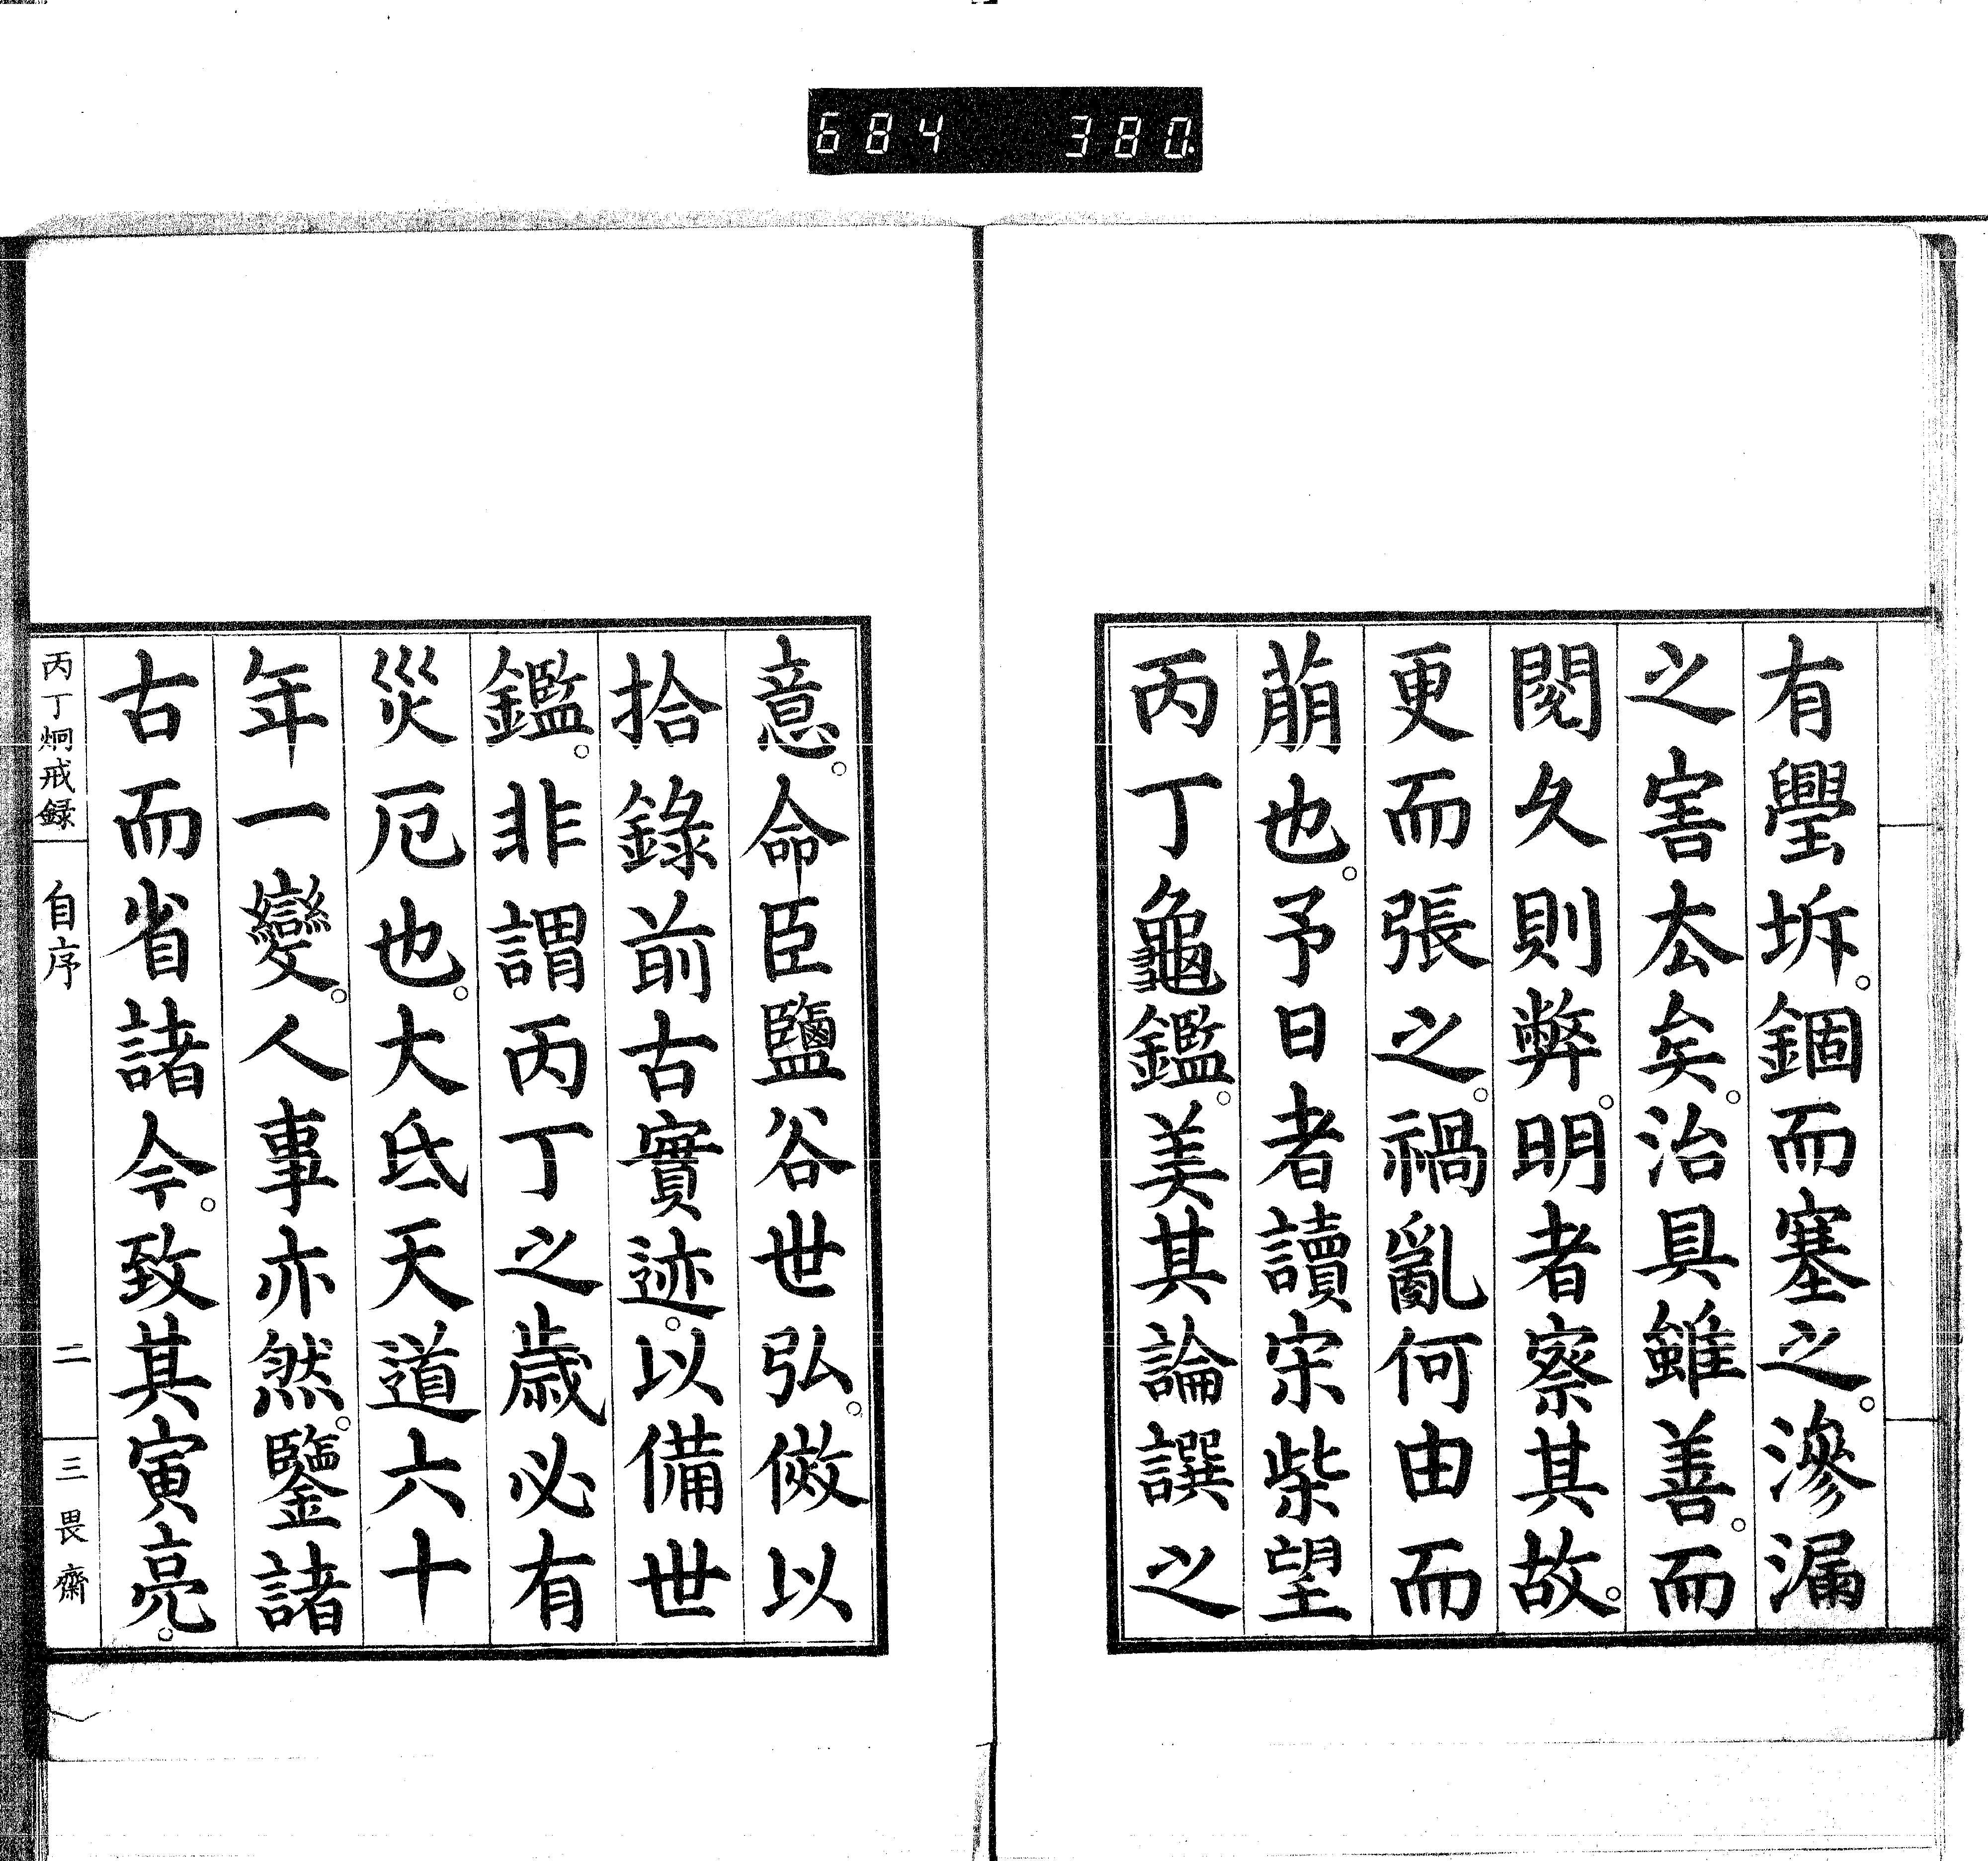 684 380
有舋坼。錮而塞之。滲漏
之害厺矣。治具雖善。而
閱久則弊。明者察其故。
更而張之。禍亂何由而
萠也。予曰者讀宋柴望
丙丁龜鑑。美其論譔之
意。命臣鹽谷世弘。倣以
拾錄前古實迹。以備世
鑑。非謂丙丁之歲必有
災厄也。大氐天道六十
年一變。人事亦然。鑒諸
古而省諸今。致其寅亮。
丙丁炯戒録 自序 二 三畏齋